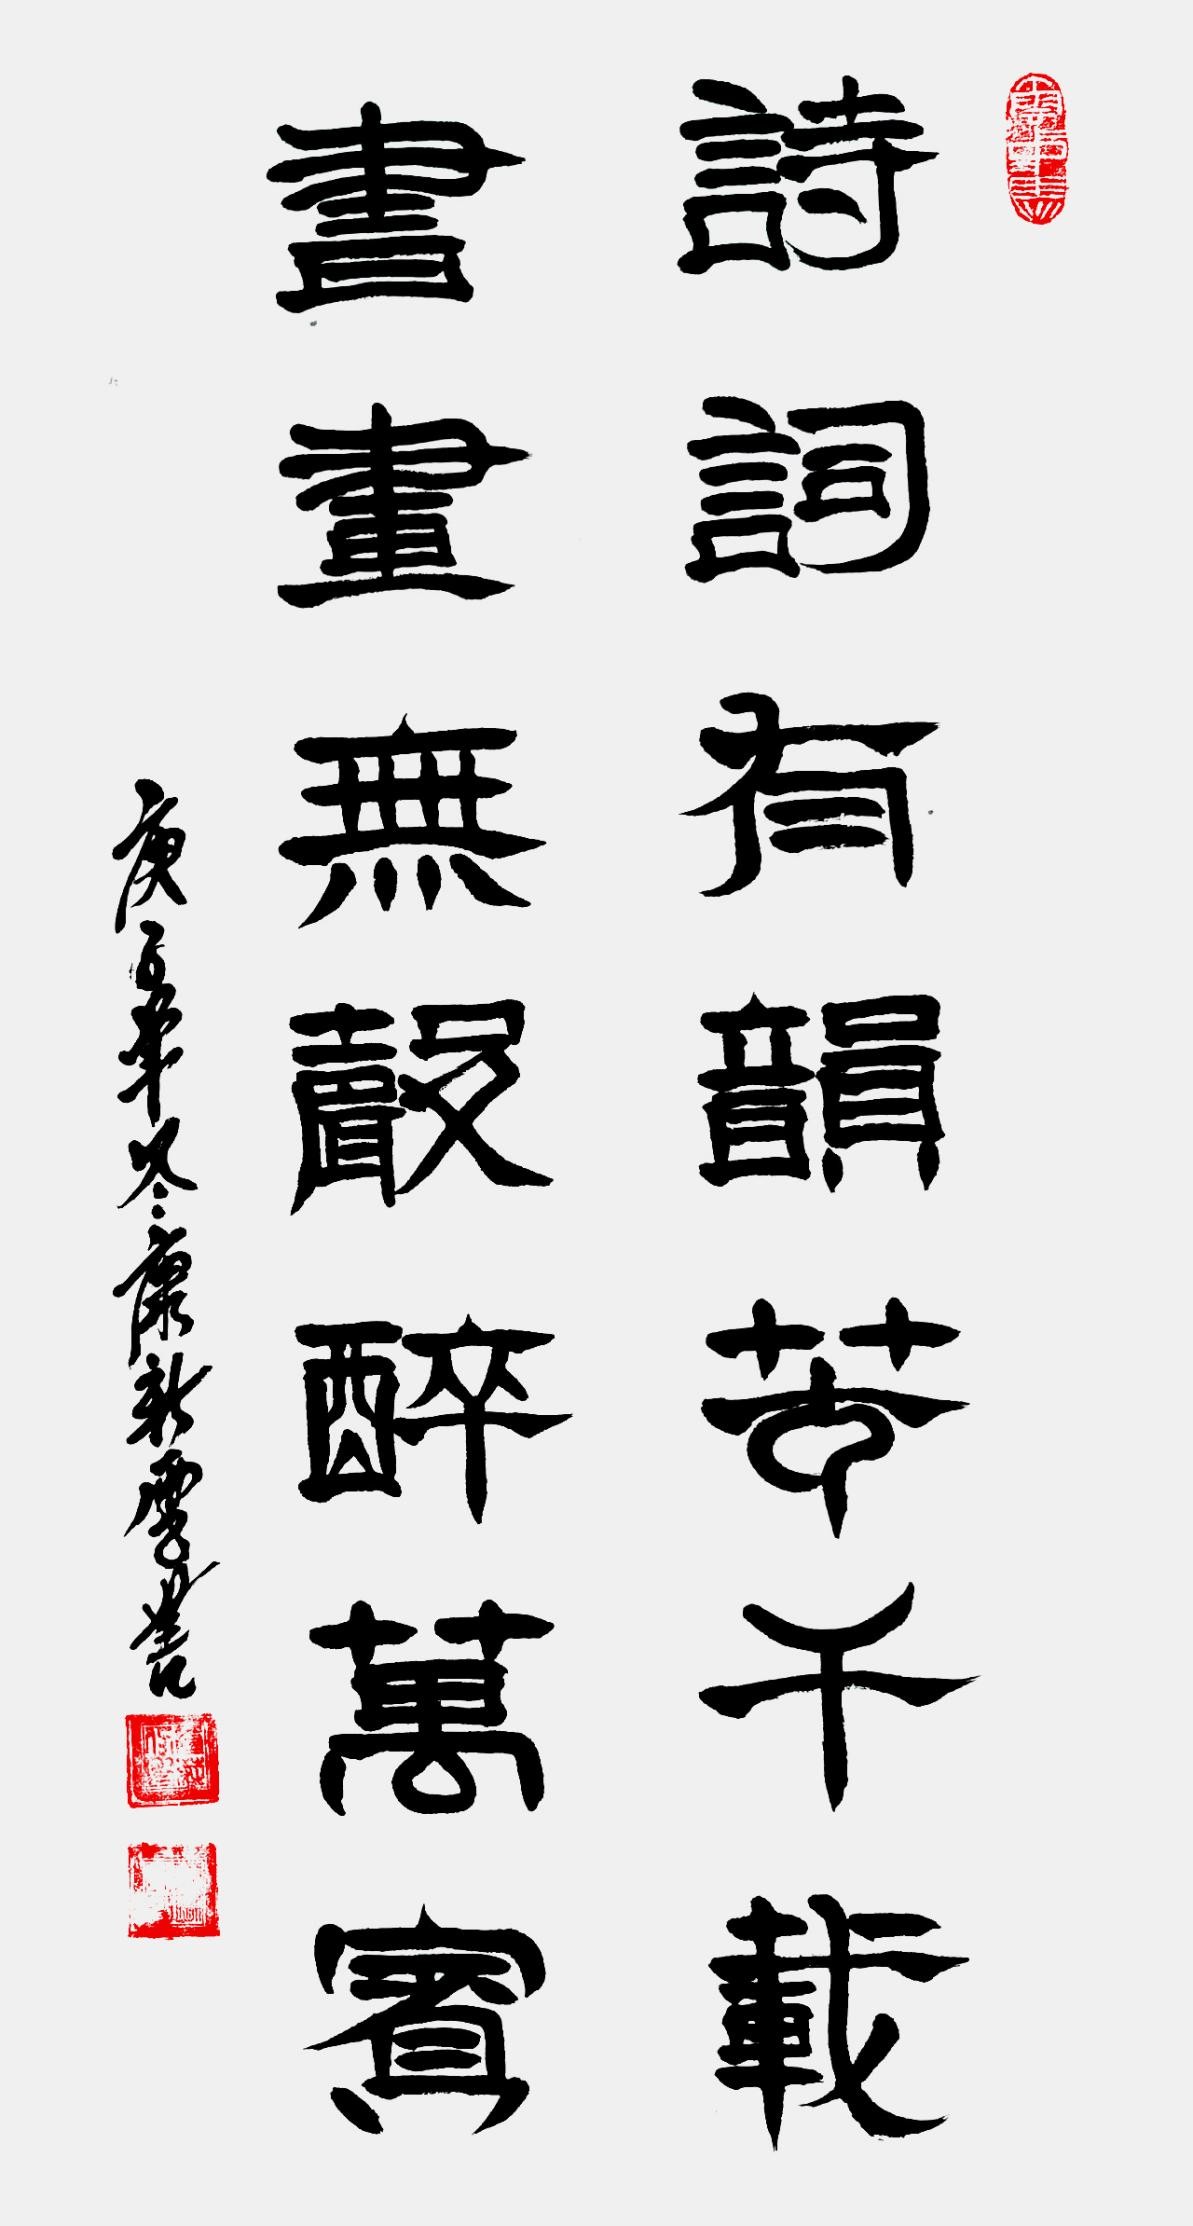 詩詞有韻芳千載
書畫無聲醉萬賓
庚子年冬康新雲書